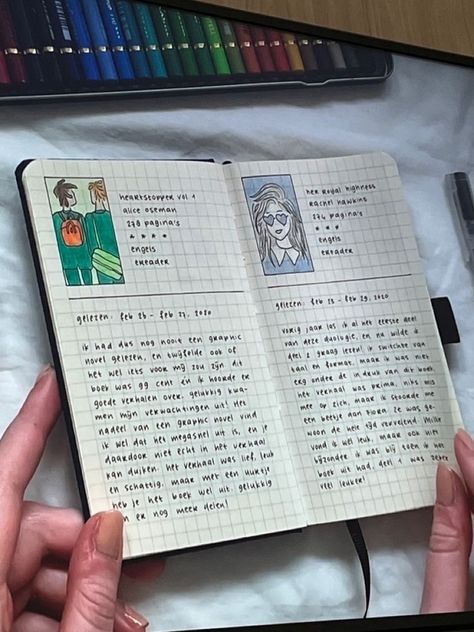 heartstopper vol 1
alice oseman
278 pagina's
* * * *
engels
ereader
gelezen: feb 26 - feb 27, 2020
ik had dus nog nooit een graphic
novel gelezen, en twijfelde ook of
het wel iets voor mij zou zijn. dit
boek was 99 cent én ik hoorde er
goede verhalen over. gelukkig kwa-
men mijn verwachtingen uit! het
nadeel van een graphic novel vind
ik wel dat het megasnel uit is, en je
daardoor niet echt in het verhaal
kan duiken. het verhaal was lief, leuk
en schattig. maar met een uurtje
heb je het boek wel uit. gelukkig
er nog meer delen!
her royal highness
rachel hawkins
274 pagina's
* * *
engels
ereader
gelezen: feb 28 - feb 29, 2020
vorig jaar las ik al het eerste deel
van deze duologie, en nu wilde ik
deel 2 graag lezen! ik switchte van
taal en format, maar ik was niet
erg onder de indruk van dit boek.
het verhaal was prima, niks mis
mee op zich, maar ik stoorde me
een beetje aan flora. ze was ge-
woon de hele tijd vervelend. millie
vond ik wel leuk. maar ook niet
bijzonder. ik was blij toen ik het
boek uit had, deel 1 was zeker
veel leuker!